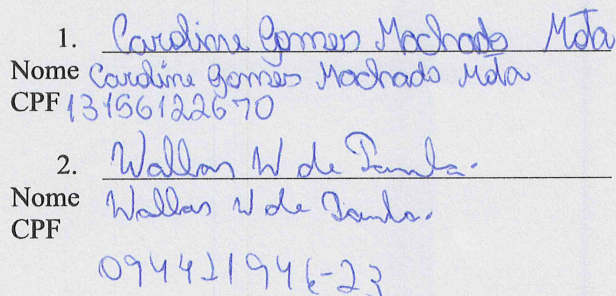 1. Caroline Gomes Machado Mota
Nome Caroline Gomes Machado Mota
CPF 13156122670
2. Wallas W de Paula.
Nome Wallas W de Paula.
CPF
094421946-23